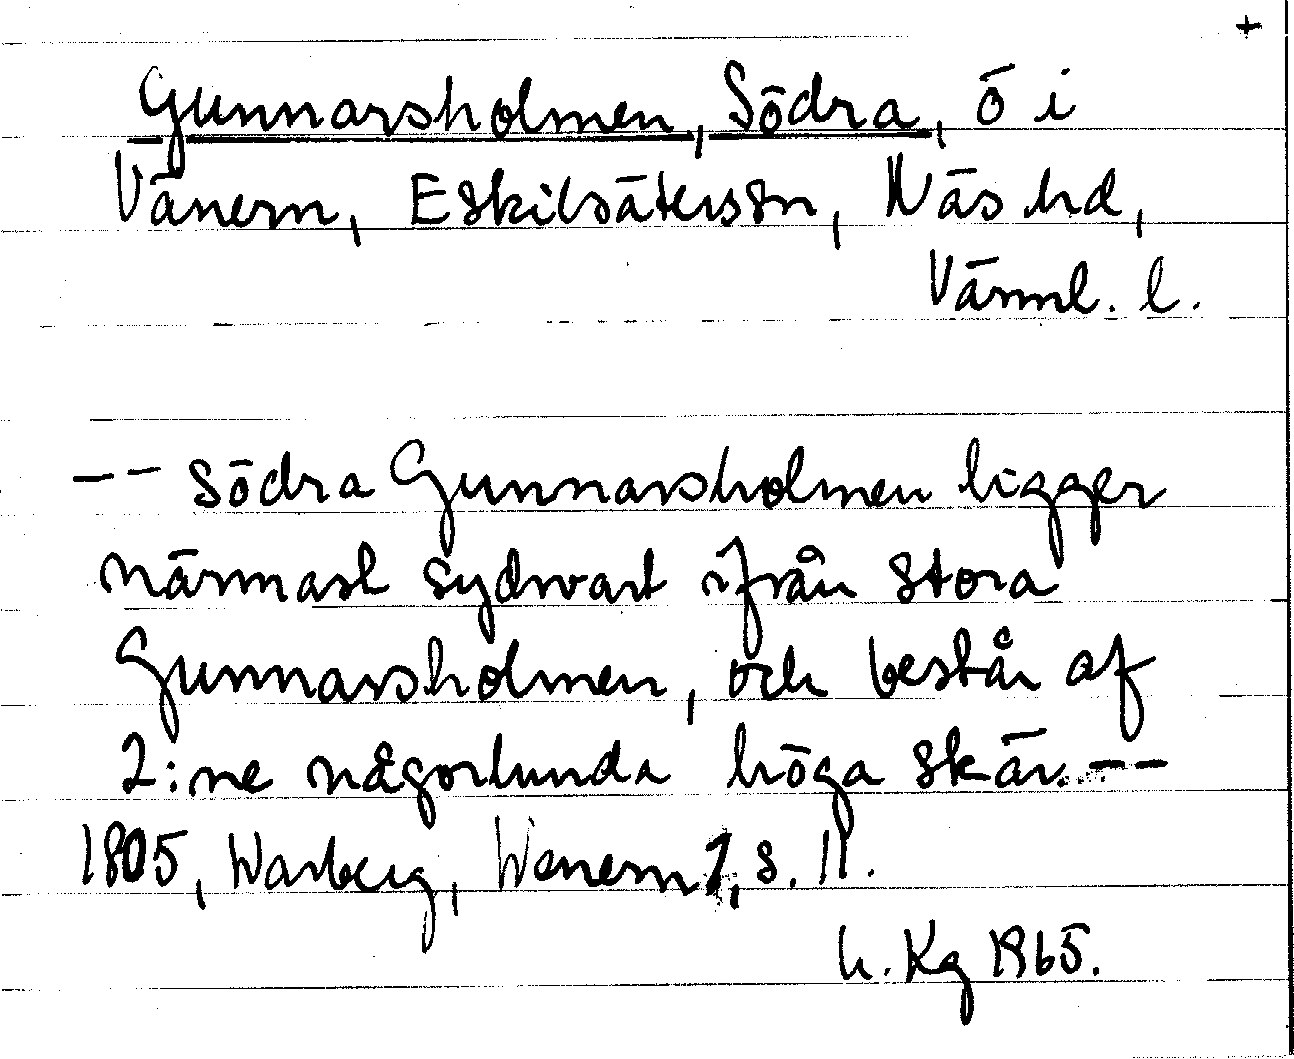 +
Gunnarsholmen, Södra, ö i
Vänern, Eskilsäterssn, Näs hd,
Värml. l.
-- Södra Gunnarsholmen ligger
närmast sydvart ifrån stora
Gunnarsholmen, och består af
2:ne någorlunda höga skär. --
1805, Warberg, Wenern 1, s. 11.
h. Kg 1965.